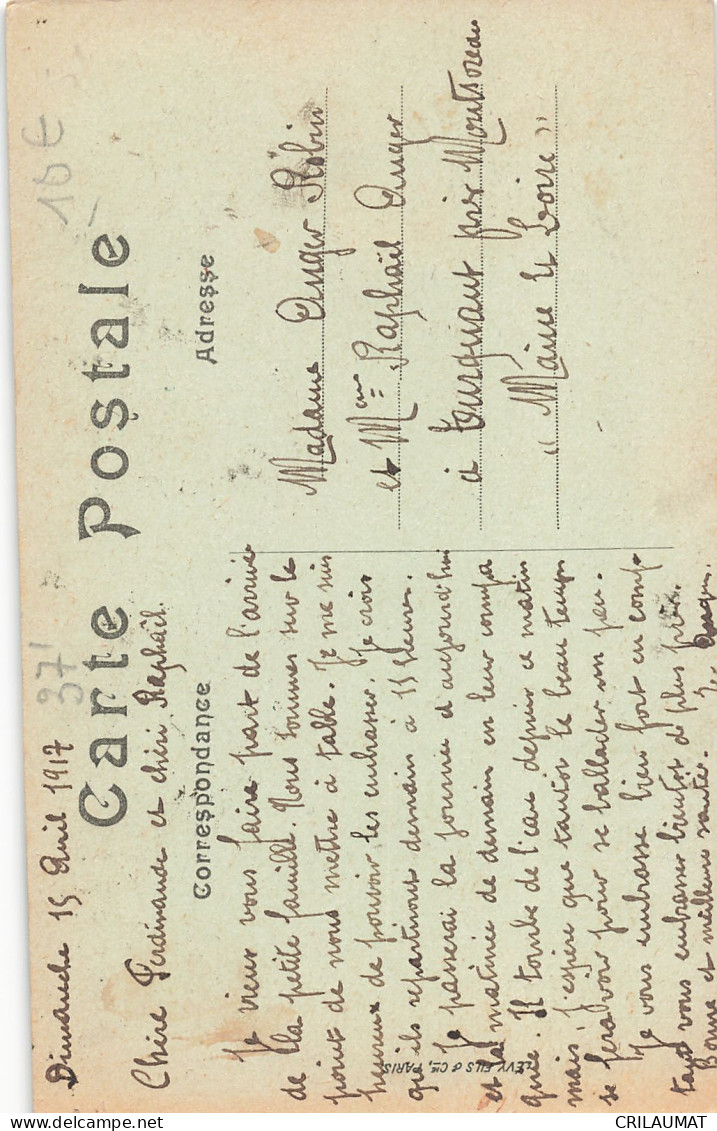 10€
37
Carte Postale
Correspondance
Adresse
Dimanche 15 Avril 1917
Chère Ferdinande et chéri Raphaël.
Je viens vous faire part de l'arrivée
de la petite famille. Nous sommes sur le
point de nous mettre à table. Je me suis
heureuse de pouvoir les embrasser. Je crois
qu'ils repartiront demain à 15 heures.
Je passerai la journée d'aujourd'hui
et la matinée de demain en leur compa
gnie. Il tombe de l'eau depuis ce matin
mais j'espère que tantôt le beau temps
se fera voir pour se ballader un peu.
Je vous embrasse bien fort en comp
tant vous embrasser bientôt de plus près.
Bonne et meilleure santé.
Madame Auger Robin
et Mme Raphaël Auger
à Turquant près Montsoreau
"Maine et Loire"
LÉVY FILS & Cie, PARIS
CRILAUMAT